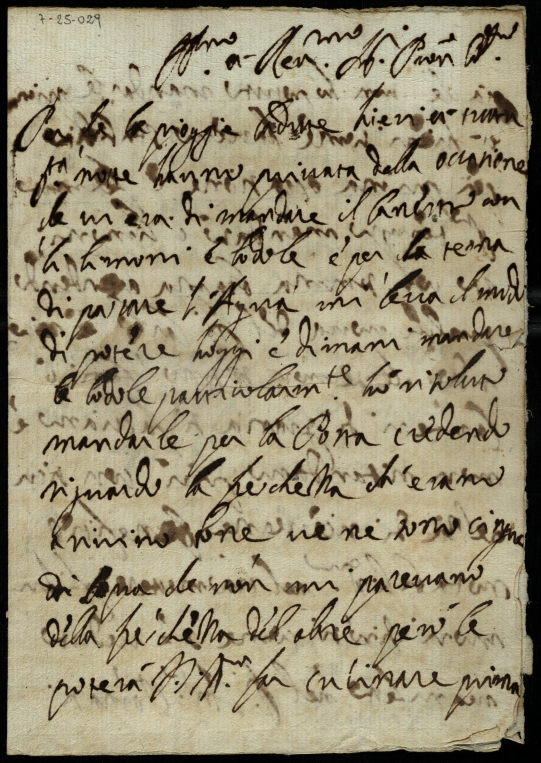 7-25-029
Ill.mo e Rev.mo Sig.r Pron Col.mo
Perche le pioggie cadute hieri et tutta
q.ta notte hanno privata della occasione
che vi era di mandare il Canestro con
li limoni e lodole e per la tema
di passare l'Acqua mi leva il modo
di potere hoggi e dimani mandare
le lodole particolarm.te ho risoluto
mandarle per la Posta credendo
riguardo la frechezza ch'erano
arrivino forse ve ne sono cinque
di sopra che non mi parevano
della frechezza del altre però le
poterà V.S. Ill.ma far cucinare prima